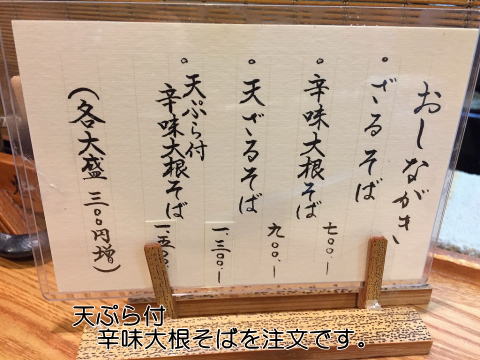 おしながき
・ざるそば 七〇〇.ー
・辛味大根そば 九〇〇.ー
・天ざるそば 一、三〇〇ー
・天ぷら付
辛味大根そば 一、五〇〇ー
(各大盛 三〇〇円増)
天ぷら付
辛味大根そばを注文です。